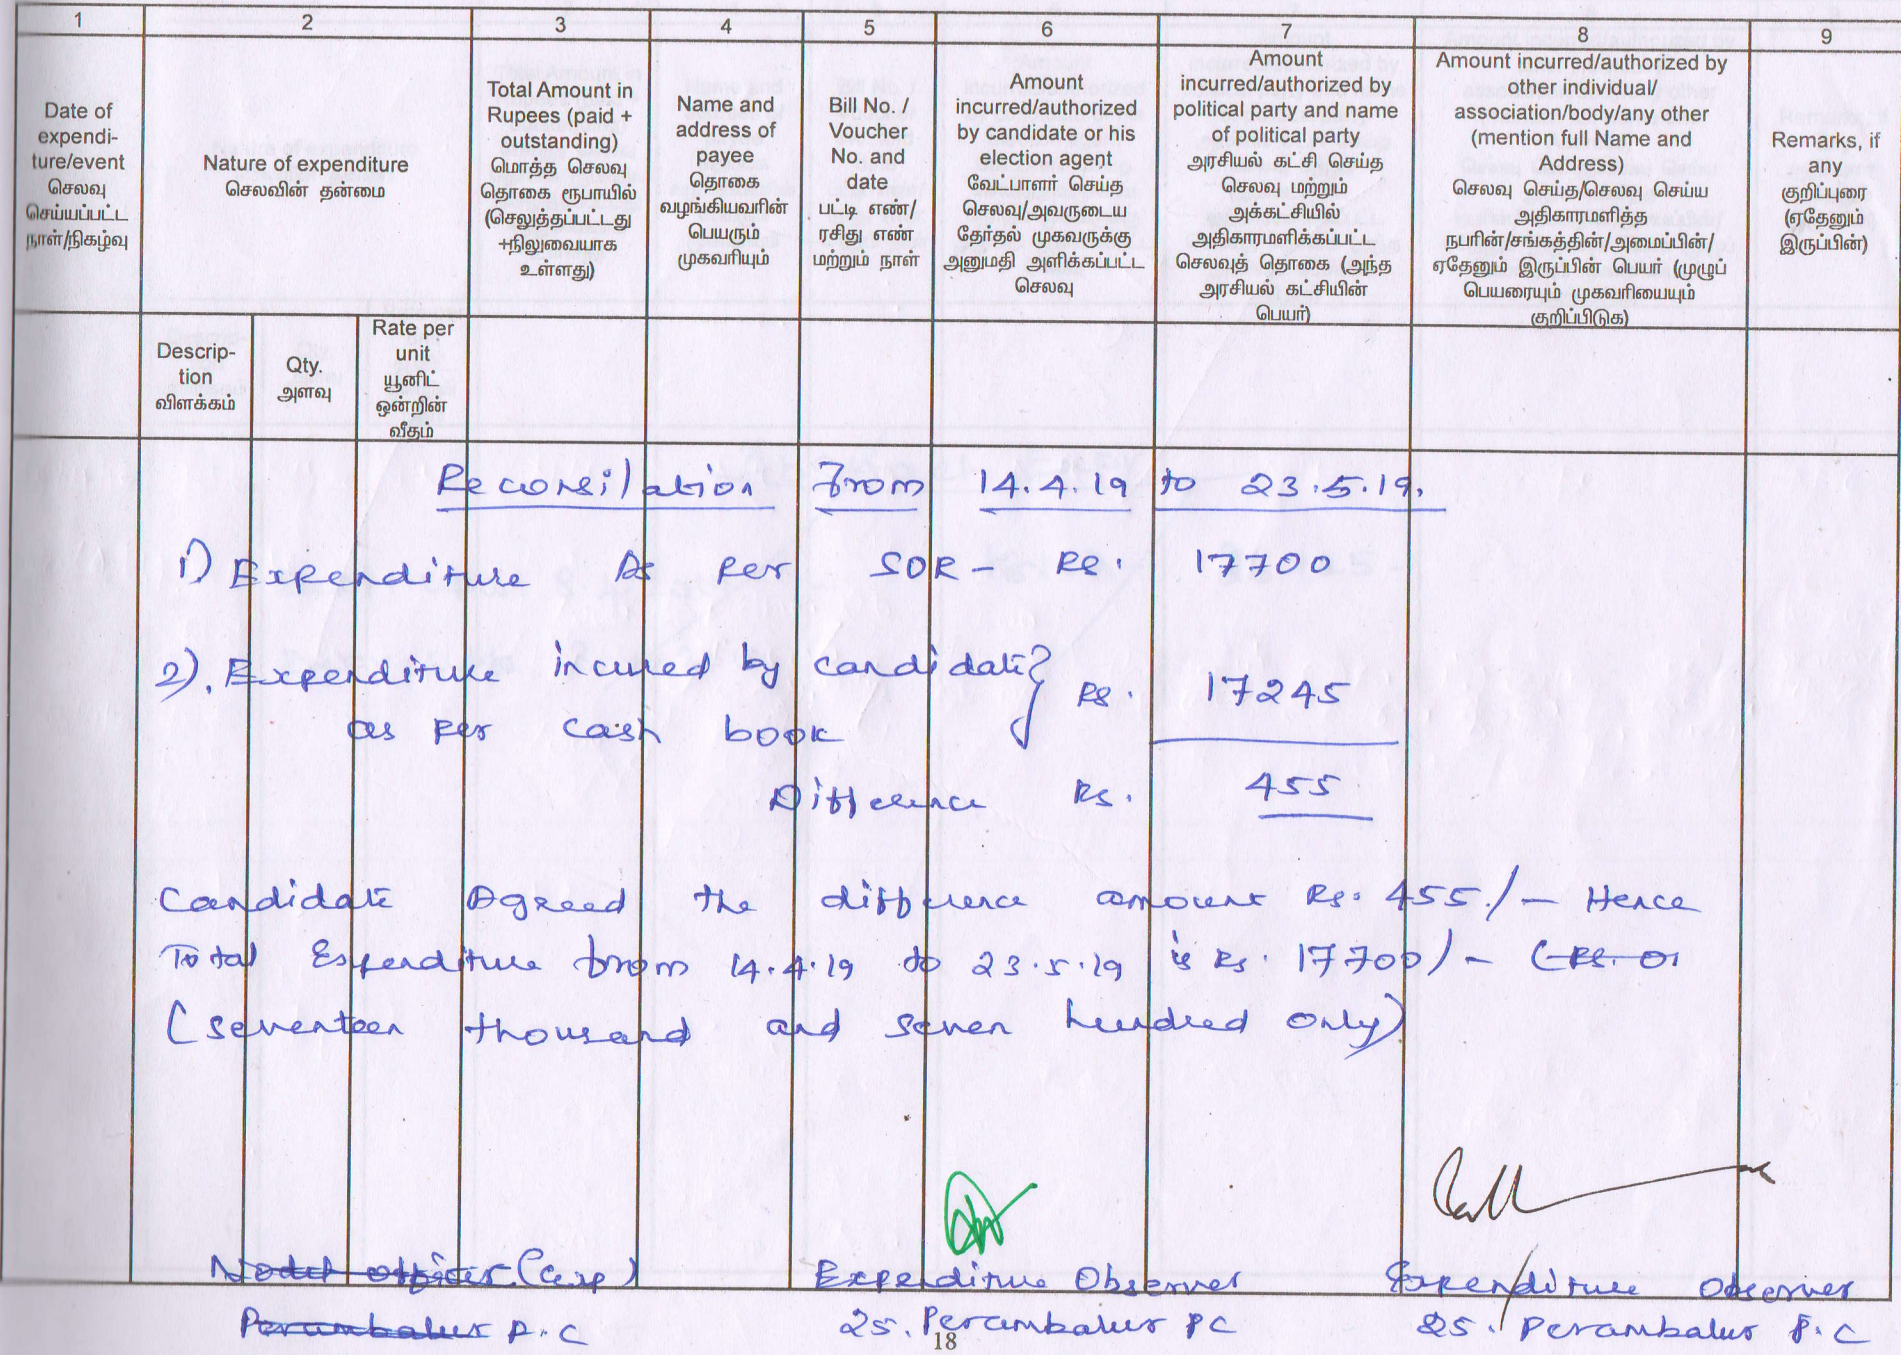 1 2 3 4 5 6 7 8 9
Date of
expendi-
ture/event
செலவு
செய்யப்பட்ட
நாள்/நிகழ்வு
Nature of expenditure
செலவின் தன்மை
Total Amount in
Rupees (paid +
outstanding)
மொத்த செலவு
தொகை ரூபாயில்
(செலுத்தப்பட்டது
+நிலுவையாக
உள்ளது)
Name and
address of
payee
தொகை
வழங்கியவரின்
பெயரும்
முகவரியும்
Bill No. /
Voucher
No. and
date
பட்டி எண்/
ரசிது எண்
மற்றும் நாள்
Amount
incurred/authorized
by candidate or his
election agent
வேட்பாளர் செய்த
செலவு/அவருடைய
தேர்தல் முகவருக்கு
அனுமதி அளிக்கப்பட்ட
செலவு
Amount
incurred/authorized by
political party and name
of political party
அரசியல் கட்சி செய்த
செலவு மற்றும்
அக்கட்சியில்
அதிகாரமளிக்கப்பட்ட
செலவுத் தொகை (அந்த
அரசியல் கட்சியின்
பெயர்)
Amount incurred/authorized by
other individual/
association/body/any other
(mention full Name and
Address)
செலவு செய்த/செலவு செய்ய
அதிகாரமளித்த
நபரின்/சங்கத்தின்/அமைப்பின்/
ஏதேனும் இருப்பின் பெயர் (முழுப்
பெயரையும் முகவரியையும்
குறிப்பிடுக)
Remarks, if
any
குறிப்புரை
(ஏதேனும்
இருப்பின்)
Descrip-
tion
விளக்கம்
Qty.
அளவு
Rate per
unit
யூனிட்
ஒன்றின்
வீதம்
Reconsilation From 14.4.19 to 23.5.19.
1) Expenditure As per SOR - Rs. 17700
2). Expenditure incured by candidate } Rs. 17245
as per cash book
Difference Rs. 455
Candidate Agreed the difference amount Rs. 455/- Hence
Total Expenditure from 14.4.19 to 23.5.19 is Rs. 17700/- (Rs. 01
(seventeen thousand and seven hundred only)
Nodal officer (Exp)
Perambalur P.C
Expenditure Observer
25. Perambalur PC
Expenditure Observer
25. Perambalur P.C
18